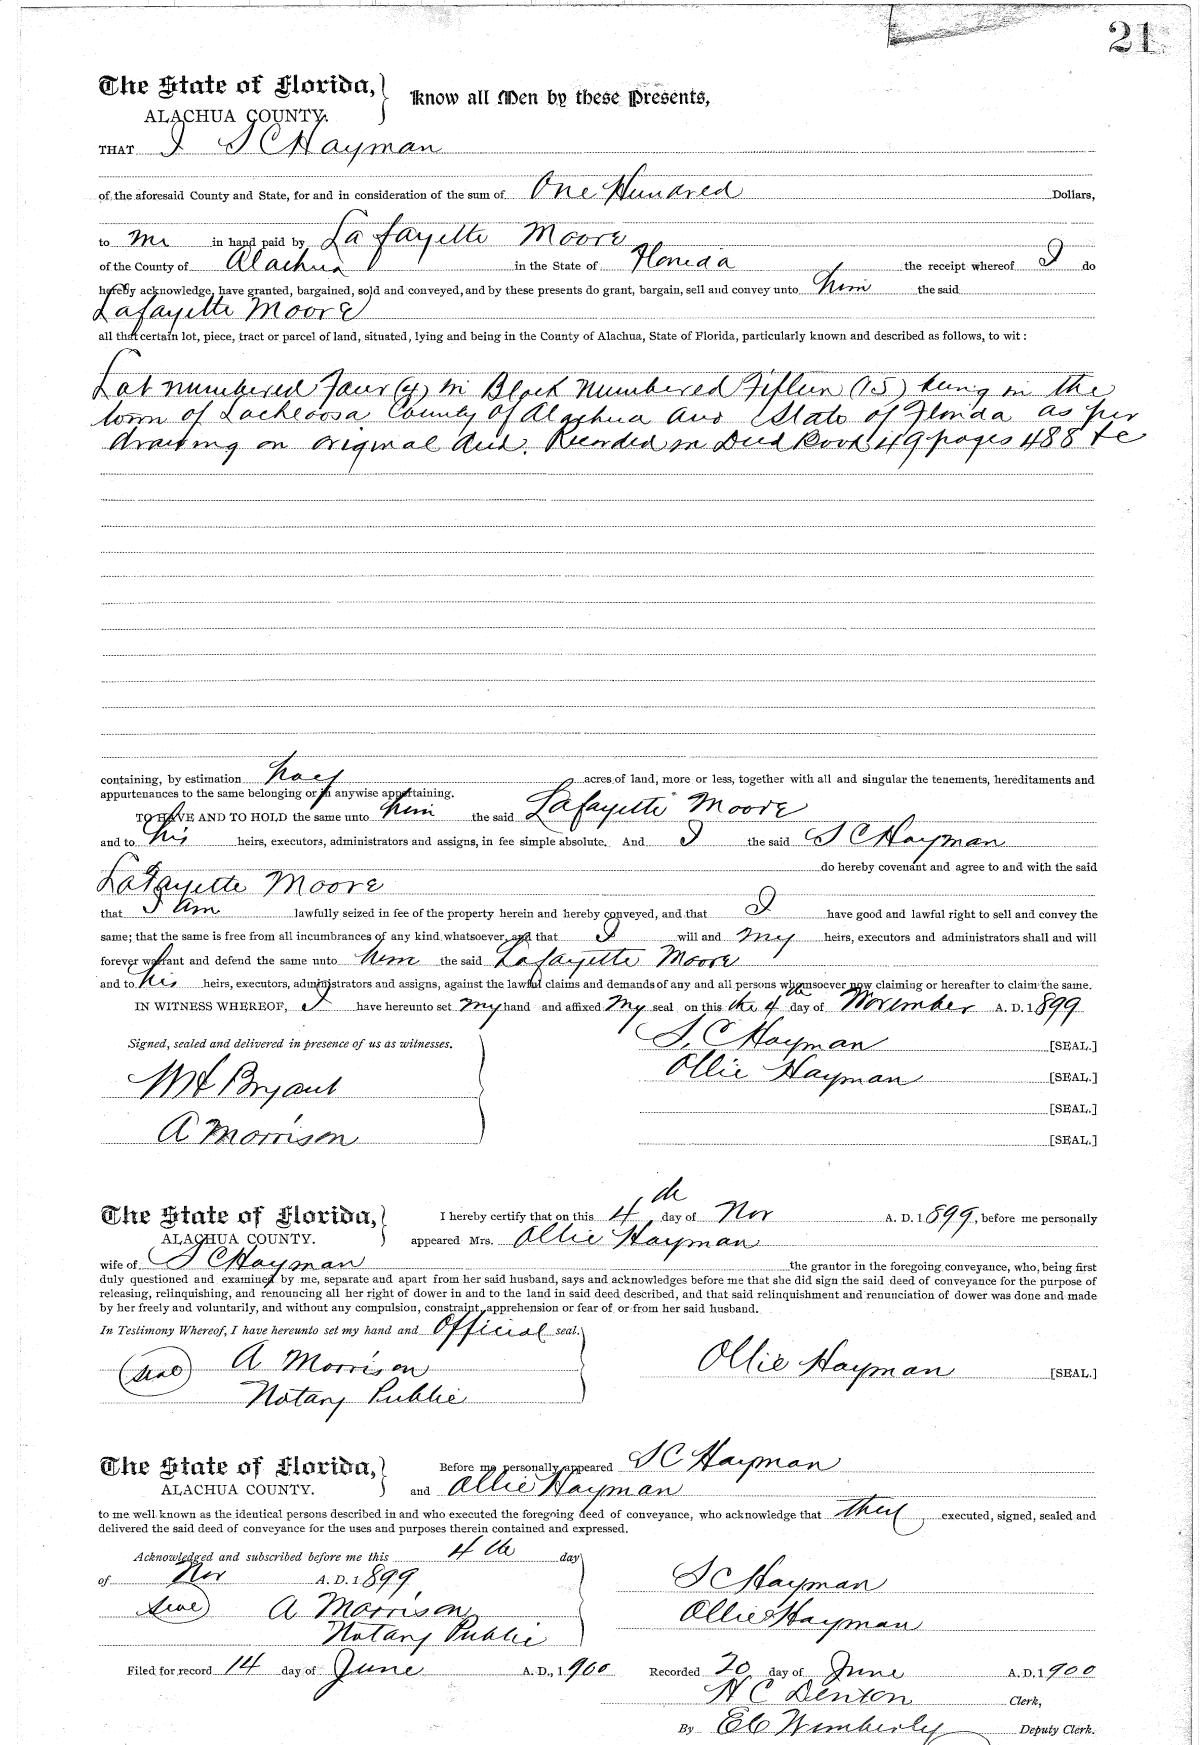 21
The State of Florida, Know all Men by these Presents,
ALACHUA COUNTY.
THAT I S C Hayman
of the aforesaid County and State, for and in consideration of the sum of One Hundred Dollars,
to me in hand paid by Lafayette Moore
of the County of Alachua in the State of Florida the receipt whereof I do
hereby acknowledge, have granted, bargained, sold and conveyed, and by these presents do grant, bargain, sell and convey unto him the said
Lafayette Moore
all that certain lot, piece, tract or parcel of land, situated, lying and being in the County of Alachua, State of Florida, particularly known and described as follows, to wit:
Lot numbered Four (4) in Block Numbered Fifteen (15) being in the
town of Lochloosa County of Alachua and State of Florida as per
drawing on original deed. Recorded in Deed Book 49 pages 488 &c
containing, by estimation acres of land, more or less, together with all and singular the tenements, hereditaments and
appurtenances to the same belonging or in anywise appertaining.
TO HAVE AND TO HOLD the same unto him the said Lafayette Moore
and to his heirs, executors, administrators and assigns, in fee simple absolute. And I the said S C Hayman
do hereby covenant and agree to and with the said
Lafayette Moore
that I am lawfully seized in fee of the property herein and hereby conveyed, and that I have good and lawful right to sell and convey the
same; that the same is free from all incumbrances of any kind whatsoever, and that I will and my heirs, executors and administrators shall and will
forever warrant and defend the same unto him the said Lafayette Moore
and to his heirs, executors, administrators and assigns, against the lawful claims and demands of any and all persons whomsoever now claiming or hereafter to claim the same.
IN WITNESS WHEREOF, I have hereunto set my hand and affixed my seal on this the 4th day of November A. D. 1899
Signed, sealed and delivered in presence of us as witnesses. S. C Hayman [SEAL.]
Ollie Hayman [SEAL.]
W H Bryant
[SEAL.]
A Morrison [SEAL.]
The State of Florida, I hereby certify that on this 4th day of Nov A. D. 1899, before me personally
ALACHUA COUNTY. appeared Mrs. Ollie Hayman
wife of S C Hayman the grantor in the foregoing conveyance, who, being first
duly questioned and examined by me, separate and apart from her said husband, says and acknowledges before me that she did sign the said deed of conveyance for the purpose of
releasing, relinquishing, and renouncing all her right of dower in and to the land in said deed described, and that said relinquishment and renunciation of dower was done and made
by her freely and voluntarily, and without any compulsion, constraint, apprehension or fear of or from her said husband.
In Testimony Whereof, I have hereunto set my hand and Official seal.
(Seal) A Morrison Ollie Hayman [SEAL.]
Notary Public
The State of Florida, Before me personally appeared S C Hayman
ALACHUA COUNTY. and Ollie Hayman
to me well known as the identical persons described in and who executed the foregoing deed of conveyance, who acknowledge that they executed, signed, sealed and
delivered the said deed of conveyance for the uses and purposes therein contained and expressed.
Acknowledged and subscribed before me this 4th day
of Nov A. D. 1899 S C Hayman
(Seal) A Morrison Ollie Hayman
Notary Public
Filed for record 14 day of June A. D., 1900 Recorded 20 day of June A. D. 1900
H C Denton Clerk,
By E C Wimberly Deputy Clerk.